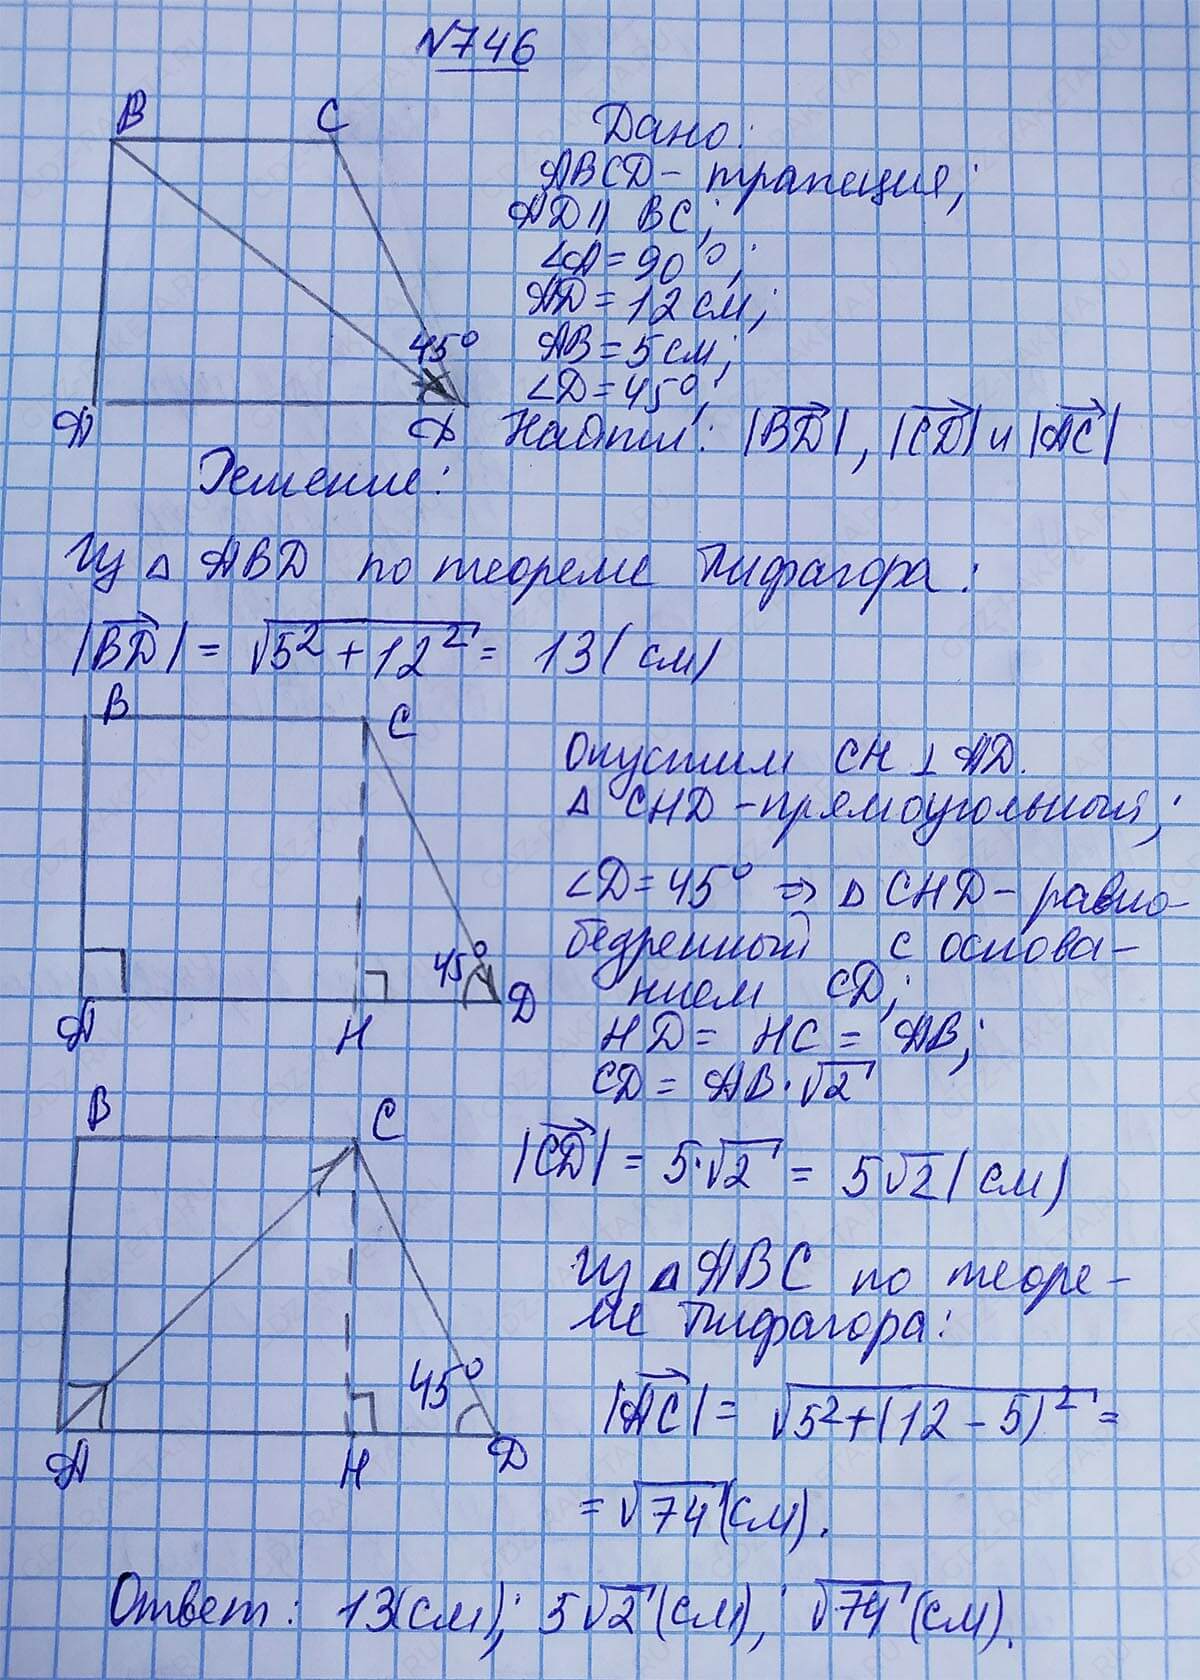 №746
B C
Дано:
ABCD - трапеция;
AD || BC;
∠A = 90°;
AD = 12 см;
AB = 5 см;
45°
∠D = 45°;
A D
Найти: |BD|, |CD| и |AC|
Решение:
Из △ ABD по теореме Пифагора:
|BD| = √5² + 12² = 13 (см)
B C
Опустим CH ⊥ AD.
△ CHD - прямоугольный;
∠D = 45° ⇒ △ CHD - равно-
бедренный с основа-
45°
нием CD;
A H D
HD = HC = AB;
CD = AB · √2
B C
|CD| = 5·√2 = 5√2 (см)
Из △ ABC по теоре-
ме Пифагора:
45°
|AC| = √5² + (12 - 5)² =
A H D
= √74 (см).
Ответ: 13 (см); 5√2 (см); √74 (см).